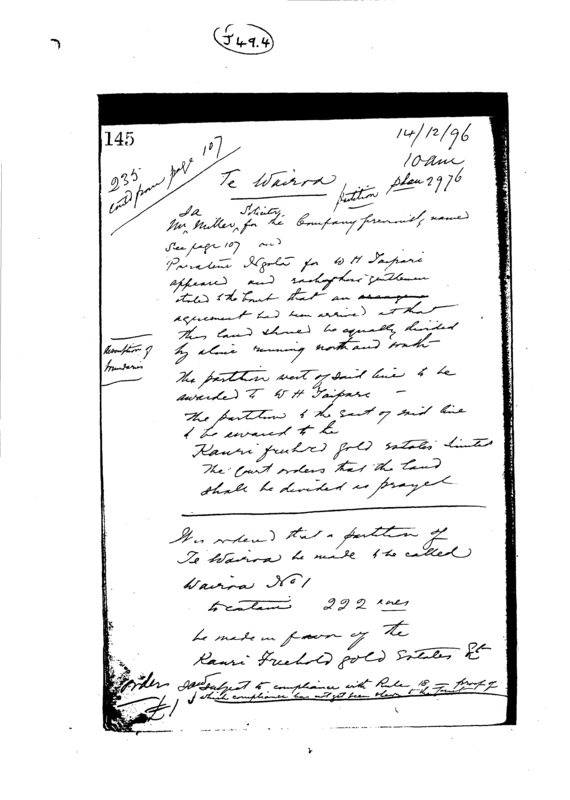 J 49.4
145
14/12/96
10 am
235
contd from page 107
Te Wairoa
partition plan 2976
Mr Miller, Solicitor, for the Company previously named
See page 107 and
Ngata for W H Taipari
appeared and each of these gentlemen
stated to the Court that an
agreement had been arrived at that
this land should be equally divided
by a line running north and south
description of
boundaries
The partition west of said line to be
awarded to W H Taipari -
The partition to the East of said line
to be awarded to the
Kauri freehold gold estates limited
The Court orders that the land
shall be divided as prayed
It is ordered that a partition of
Te Wairoa be made to be called
Wairoa No 1
to contain 222 acres
be made in favor of the
Kauri Freehold gold Estates Ltd
orders subject to compliance with Rule 18 - proof of
£1 which compliance has not yet been shown to the Court